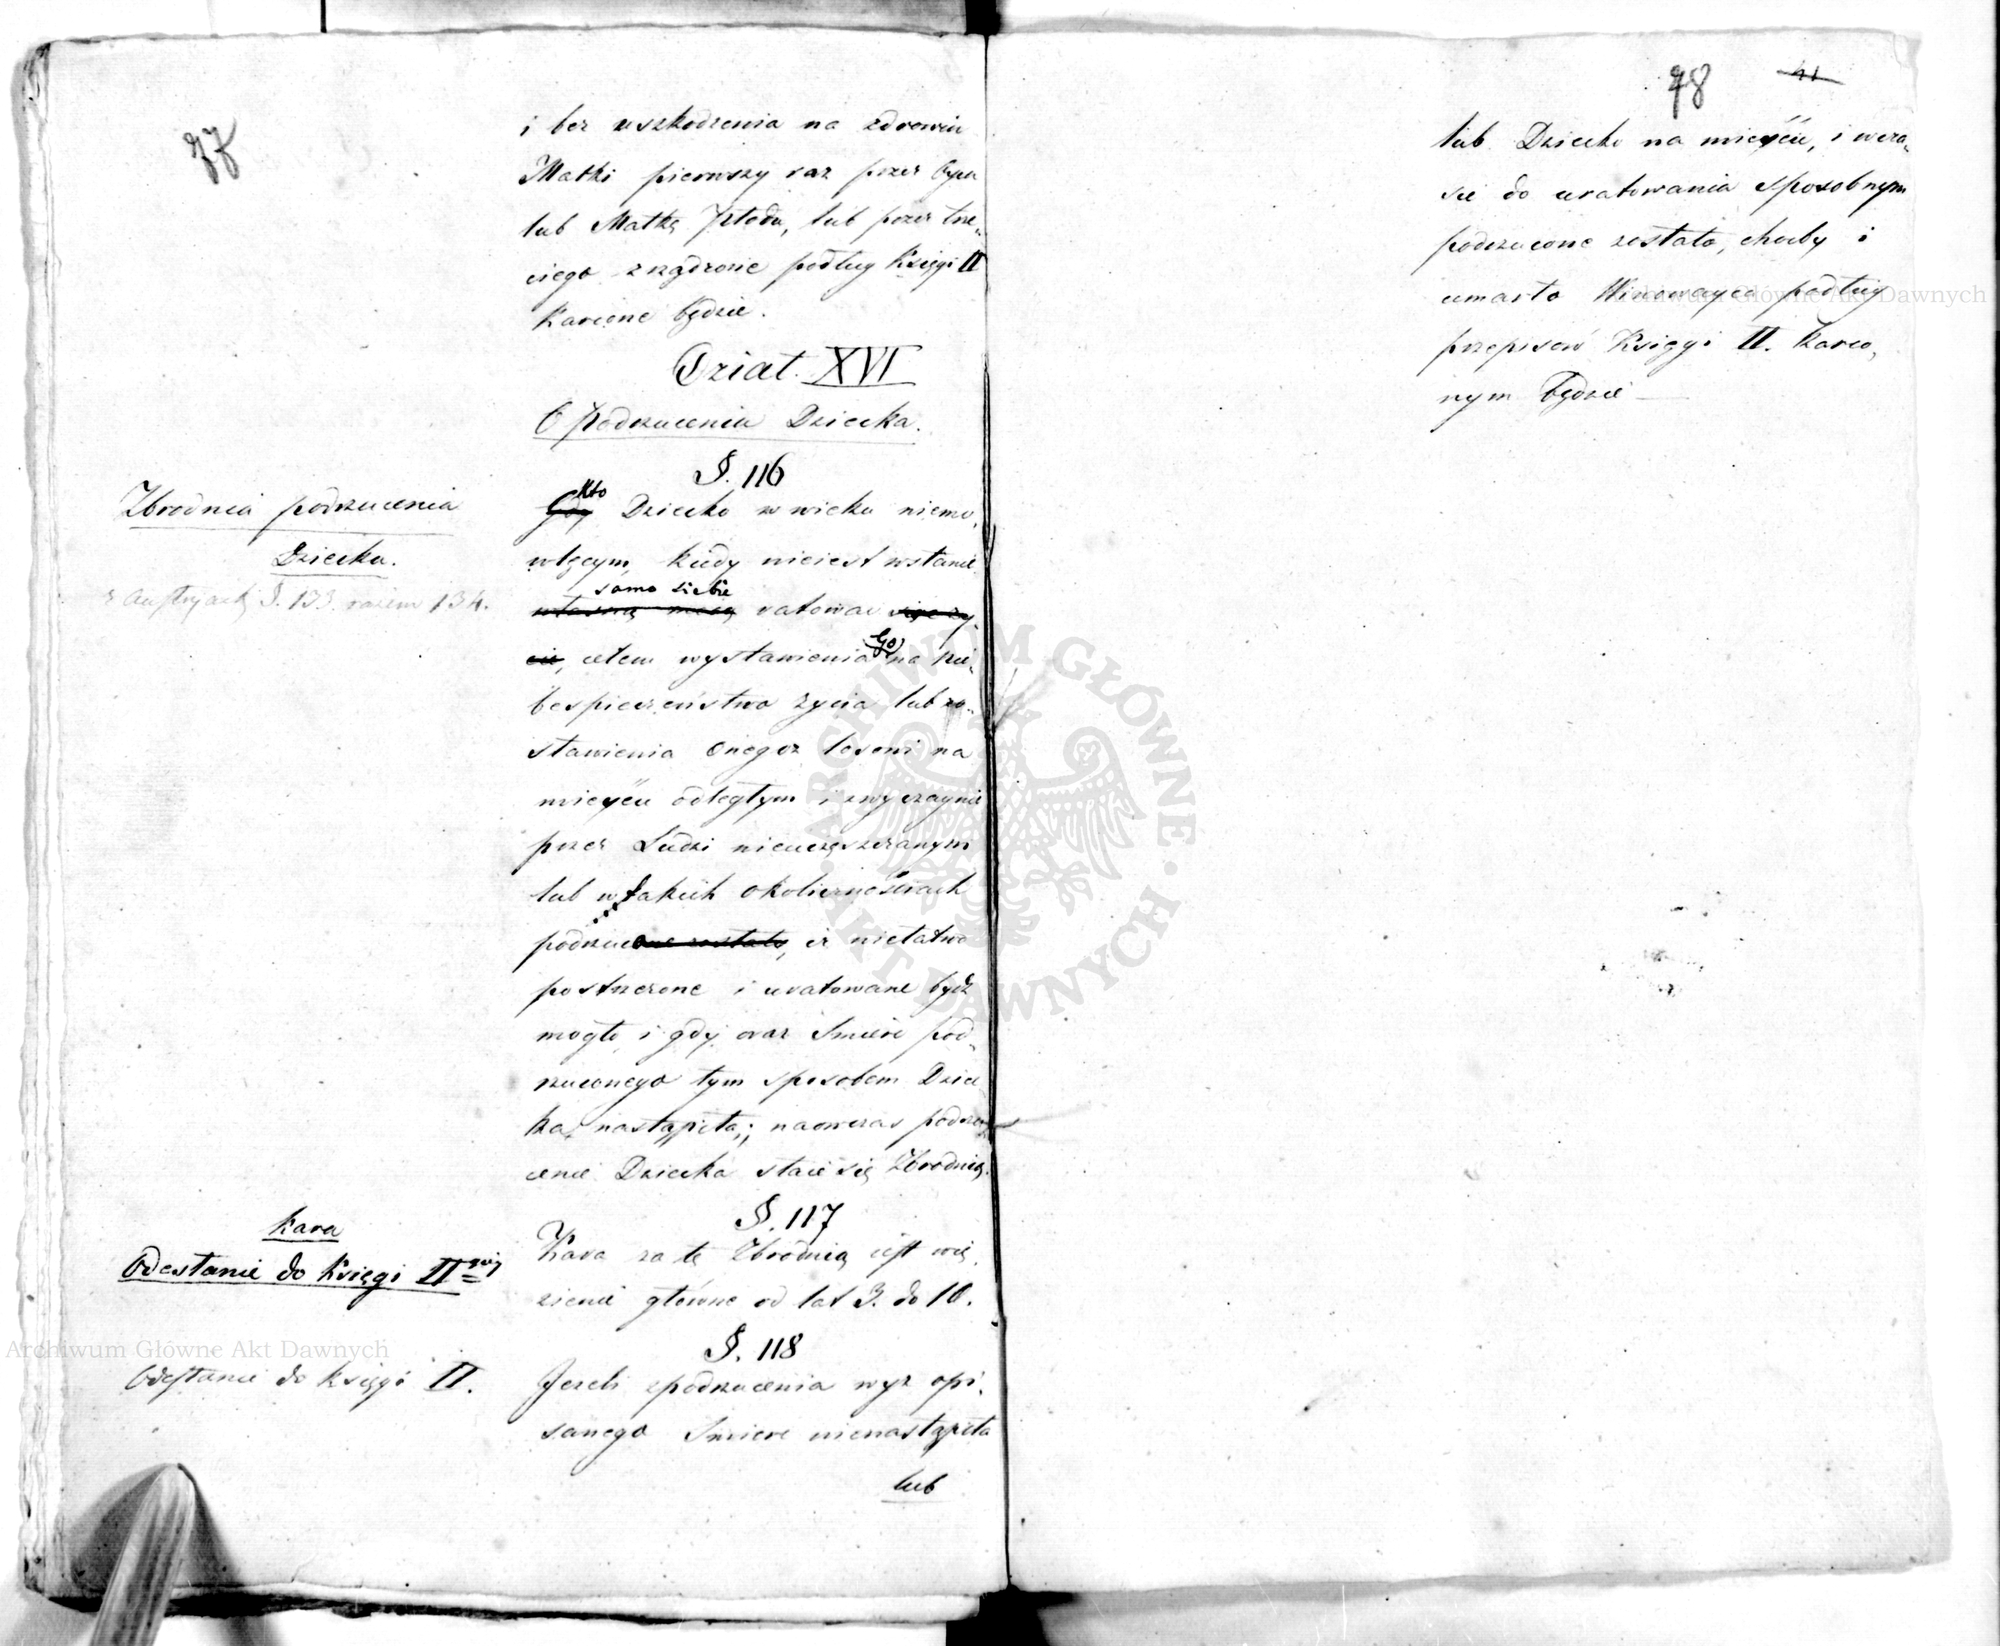 77
i bez uszkodzenia na zdrowiu
Matki pierwszy raz przez Oyca
lub Matkę Płodu, lub przez trze-
ciego zrządzone podług Księgi II
karane będzie.
Dział XVI
O Podrzuceniu Dziecka.
§. 116
Zbrodnia podrzucenia
Dziecka.
z Austryack. §. 133. razem 134.
Kto
Gdy Dziecko w wieku niemo-
wlęcym, kiedy nieiest wstanie
samo siebie
własną mocą ratować swe ży-
cie, celem wystawienia Go na nie-
bespieczeństwo życia lub zo-
stawienia Onegoż losowi na
mieyscu odległym i zwyczaynie
przez Ludzi nieuczęszczanym
lub w takich okolicznościach
podrzucone zostało, iż niełatwo
postrzeżone i uratowane bydź
mogło, i gdy oraz Śmierć pod-
rzuconego tym sposobem Dziec
ka nastąpiła; naowczas podrzu
cenie Dziecka staie się Zbrodnią.
§. 117
Kara
Odesłanie do Księgi II
Kara za tę Zbrodnią iest wię-
zienie główne od lat 3. do 10.
§. 118
Odesłanie do Księgi II.
Jeżeli zpodrzucenia wyż opi-
sanego Śmierć nienastąpiła
lub
78 41
lub Dziecko na mieyscu, i wcza-
sie do uratowania sposobnym
podrzucone zostało, choćby i
umarło Winowayca podług
przepisów Księgi II. karo-
nym będzie —
Archiwum Główne Akt Dawnych
Archiwum Główne Akt Dawnych
ARCHIWUM GŁÓWNE · AKT DAWNYCH ·